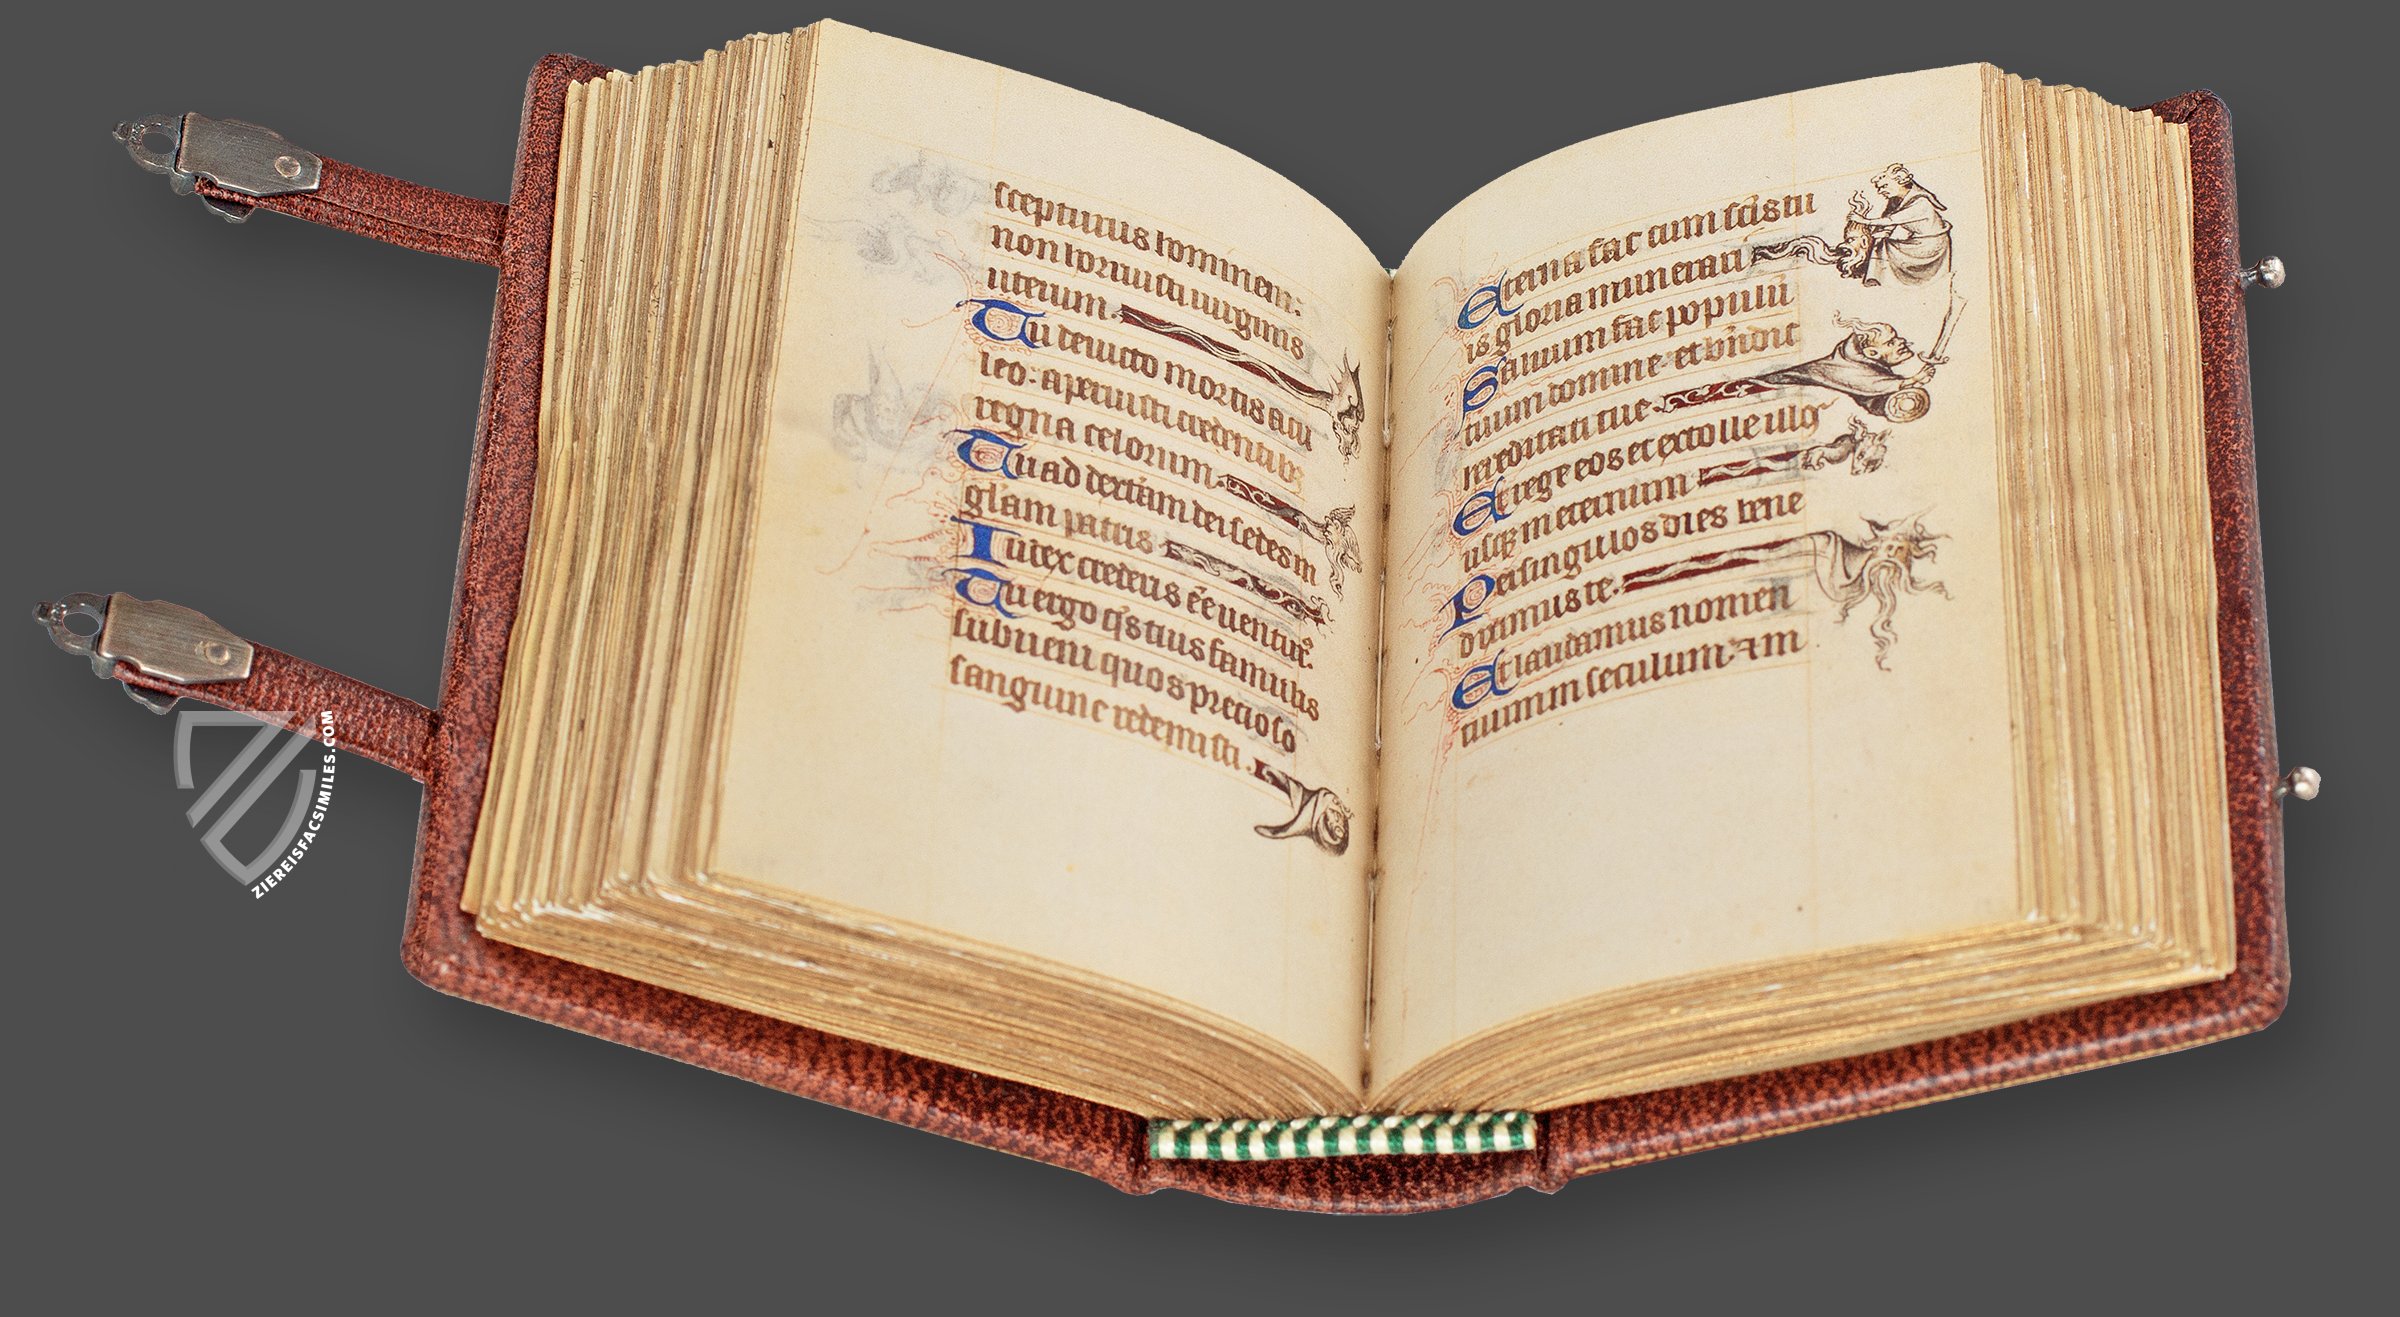 scepturus hominem:
non horruisti uirginis
uterum.
Tu deuicto mortis acu
leo: aperuisti credentibꝫ
regna celorum.
Tu ad dexteram dei sedes in
gl̃iam patris
Iudex crederis eẽ uenturꝰ.
Tu ergo q̃s tuis famulis
subueni quos precioso
sanguine redemisti.
Eterna fac cum sc̃is tu
is gloria munerari
Saluum fac populũ
tuum domine et bñdic
hereditati tue.
Et rege eos et extolle illos
usqꝫ in eternum
Per singulos dies bene
dicimus te.
Et laudamus nomen
tuum in seculum. Am
ZIEREISFACSIMILES.COM